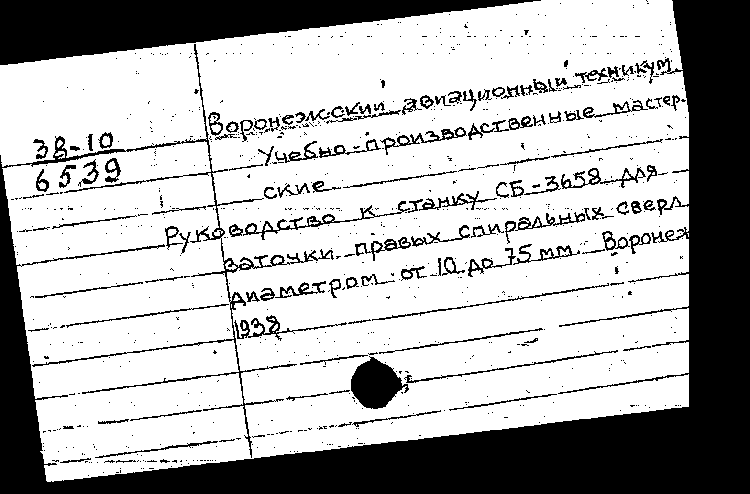 38-10
6539
Воронежский авиационный техникум.
Учебно-производственные мастер-
ские
Руководство к станку СБ-3658 для
заточки правых спиральных сверл
диаметром от 10 до 75 мм. Воронеж
1938.